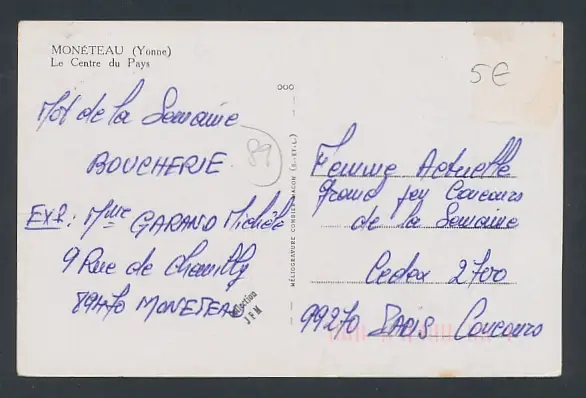 MONÉTEAU (Yonne)
Le Centre du Pays
5€
Mot de la Semaine
BOUCHERIE
89
EXP: Mme GARAND Michèle
9 Rue de Chemilly
89470 MONETEAU
Collection
J F M
HÉLIOGRAVURE COMBIER MACON (S.-ET-L.)
Femme Actuelle
Grand jeu Concours
de la Semaine
Cedex 2700
99270 PARIS Concours